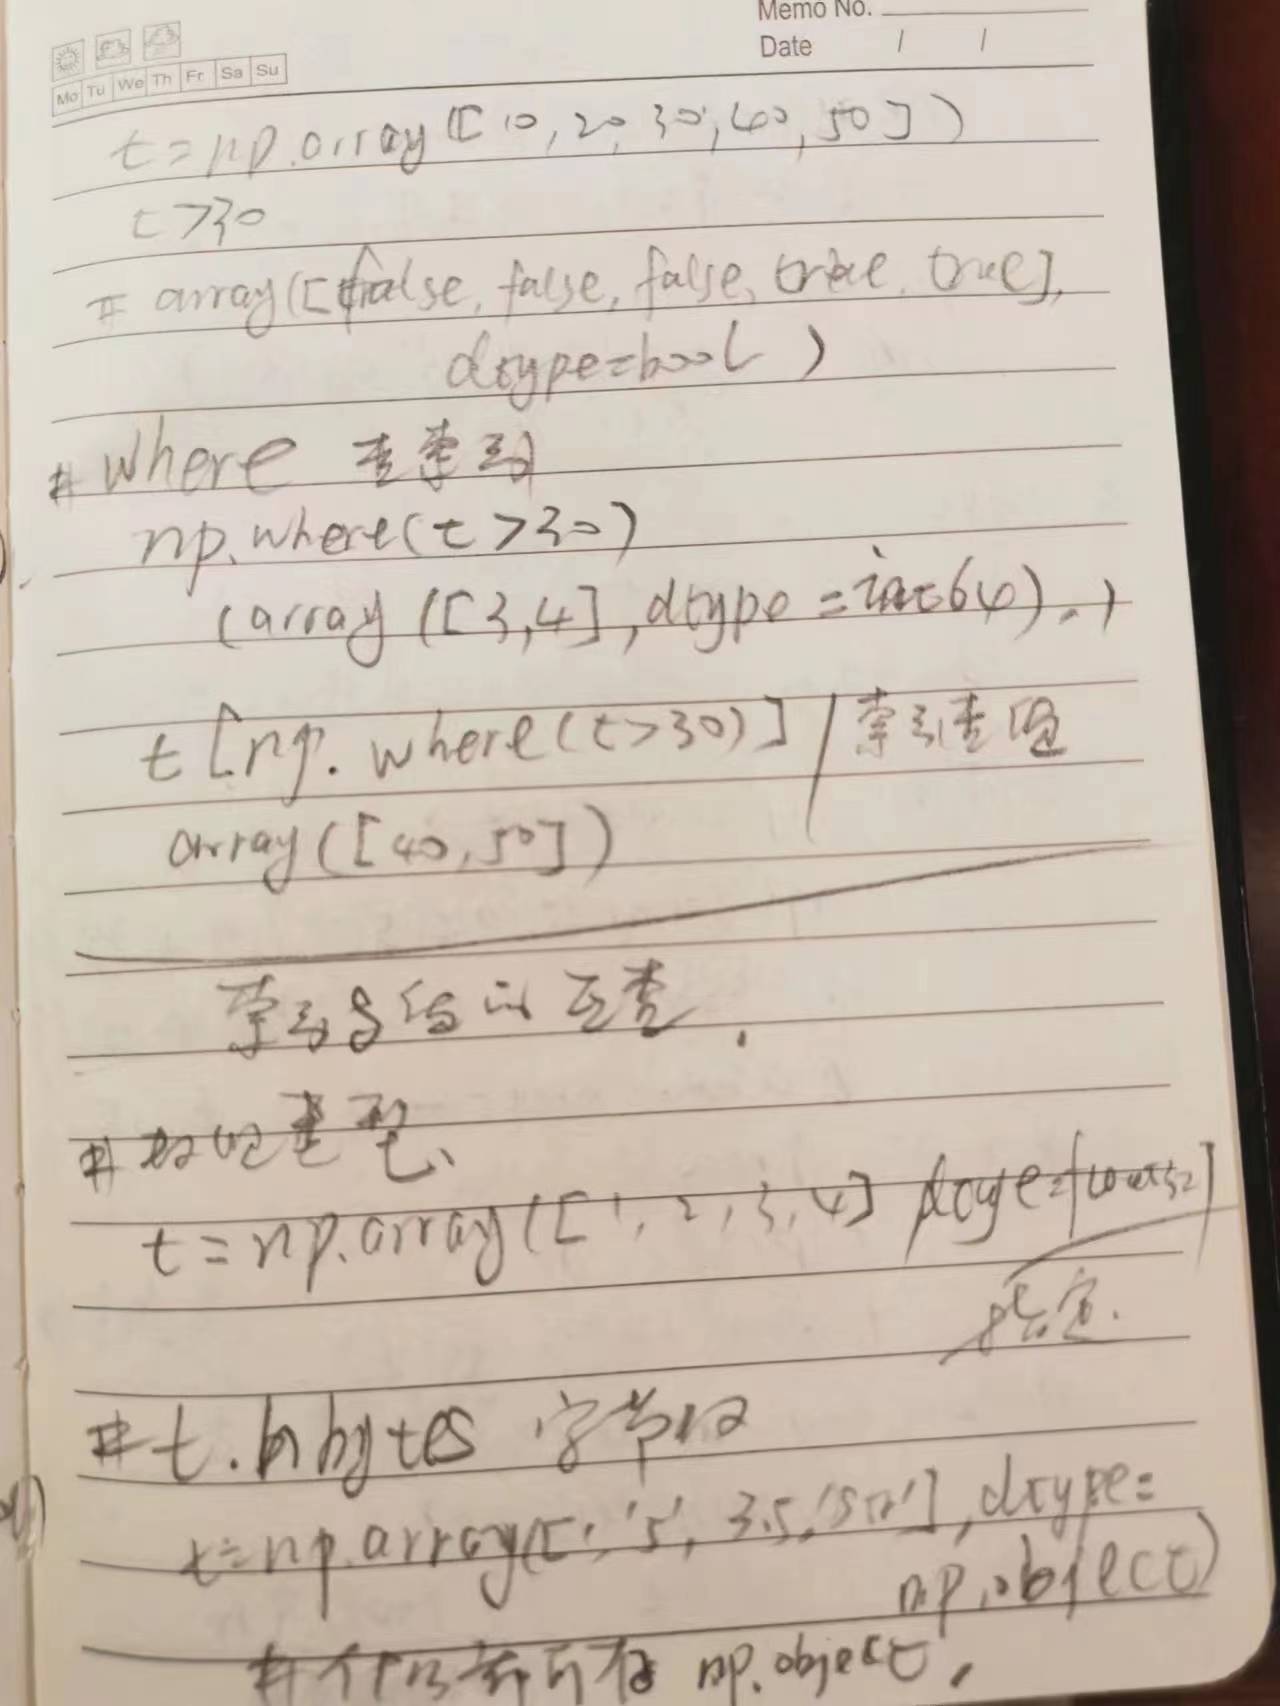 Memo No.
Date / /
Mo Tu We Th Fr Sa Su
t=np.array([10,20,30,40,50])
t>30
# array([false, false, false, true, true],
dtype=bool)
# where 查索引
np.where(t>30)
(array([3,4],dtype=int64),)
t[np.where(t>30)] / 索引查值
array([40,50])
索引 查
# 类型、
t=np.array([1,2,3,4] dtype=float32]
指定.
# t.nbytes 字节
t=np.array([1,'5',3.5, ],dtype=
np.object)
# np.object,